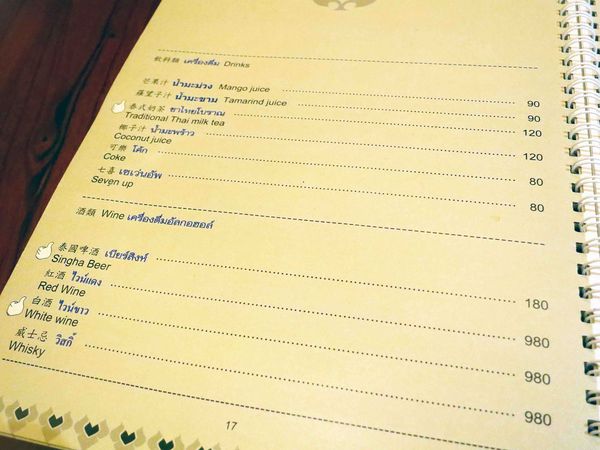 飲料類 เครื่องดื่ม Drinks
芒果汁 น้ำมะม่วง Mango juice 90
羅望子汁 น้ำมะขาม Tamarind juice 90
泰式奶茶 ชาไทยโบราณ
Traditional Thai milk tea 120
椰子汁 น้ำมะพร้าว
Coconut juice 120
可樂 โค้ก
Coke 80
七喜 เซเว่นอัพ
Seven up 80
酒類 Wine เครื่องดื่มอัลกอฮอล์
泰國啤酒 เบียร์สิงห์
Singha Beer 180
紅酒 ไวน์แดง
Red Wine 980
白酒 ไวน์ขาว
White wine 980
威士忌 วิสกี้
Whisky 980
17